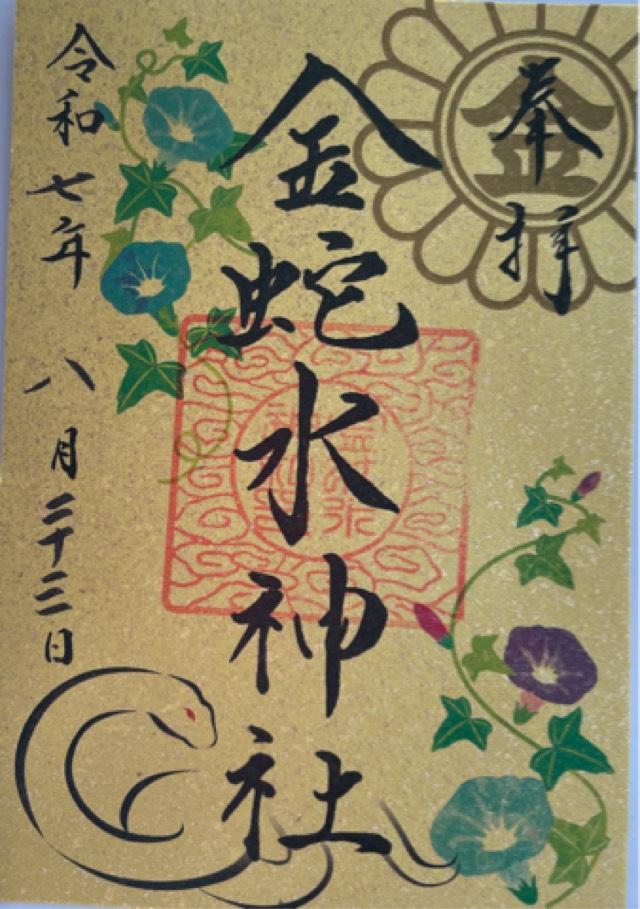 奉拝
金
金蛇水神社
令和七年 八月二十二日